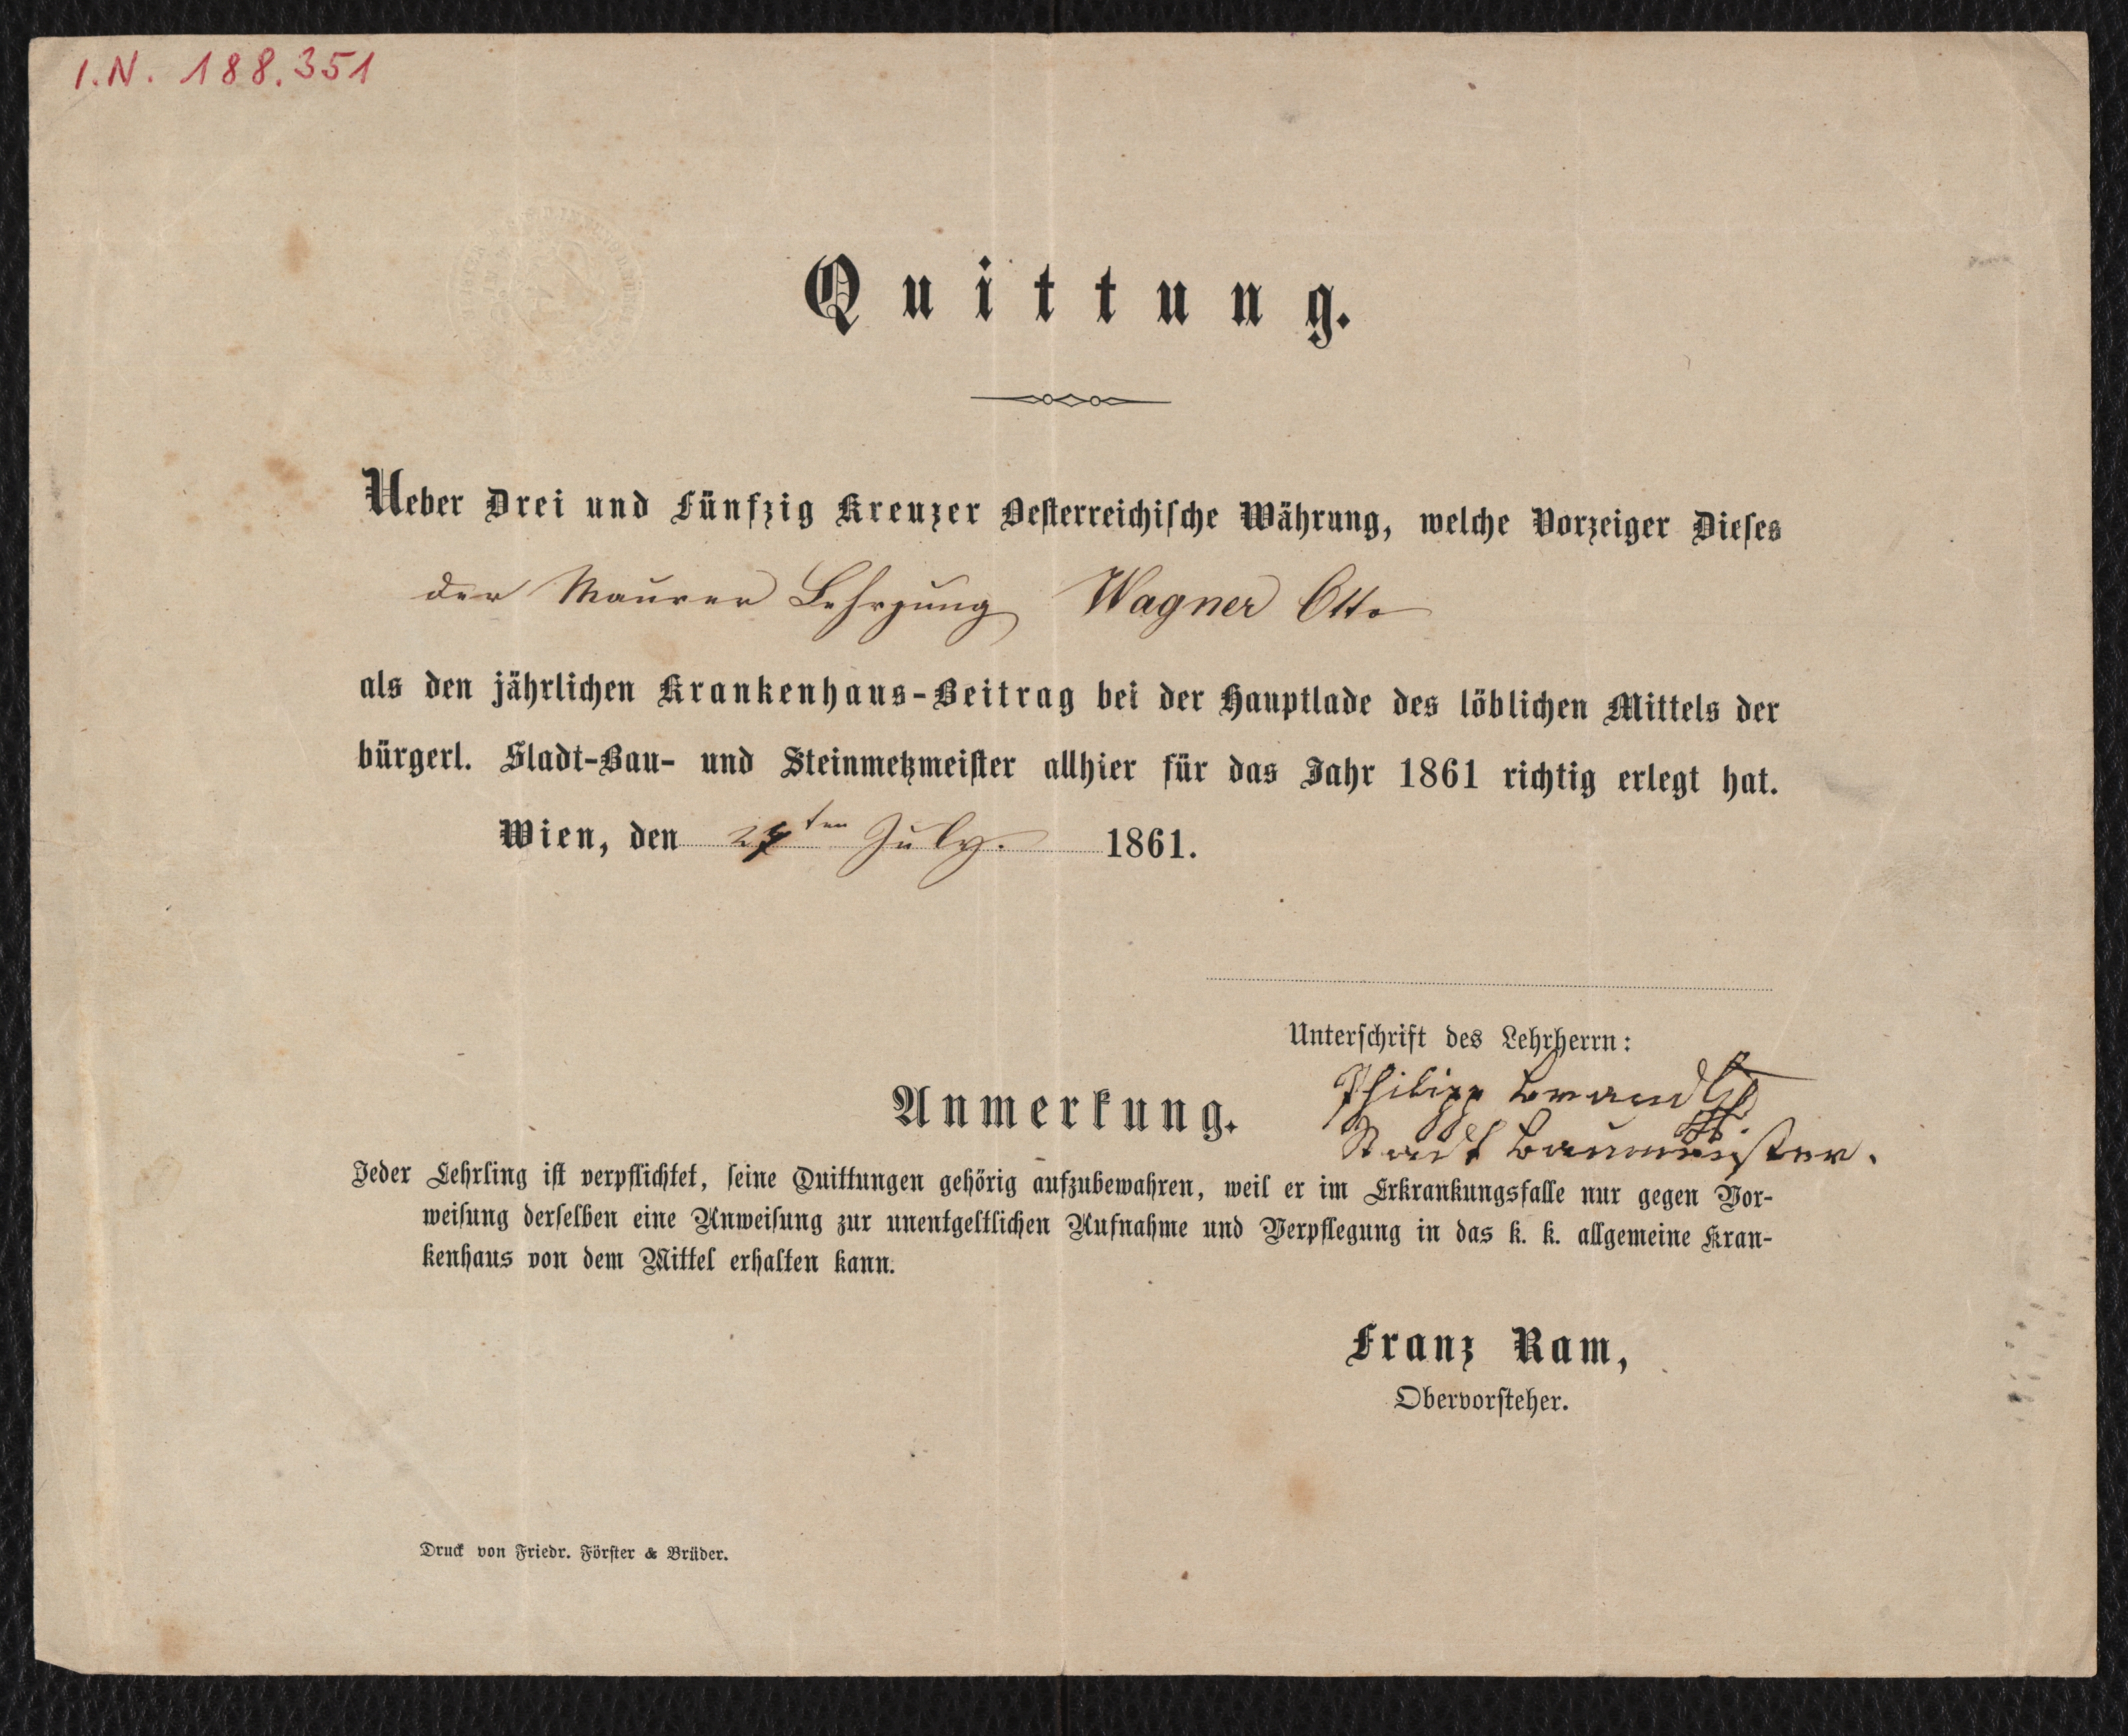 I.N. 188.351
Quittung.
Ueber Drei und Fünfzig Kreuzer Oesterreichische Währung, welche Vorzeiger Dieses
der Maurer Lehrjung Wagner Otto
als den jährlichen Krankenhaus-Beitrag bei der Hauptlade des löblichen Mittels der
bürgerl. Stadt-Bau- und Steinmetzmeister allhier für das Jahr 1861 richtig erlegt hat.
Wien, den ten July. 1861.
Unterschrift des Lehrherrn:
Philipp Brandl
Stadt Baumeister.
Anmerkung.
Jeder Lehrling ist verpflichtet, seine Quittungen gehörig aufzubewahren, weil er im Erkrankungsfalle nur gegen Vor-
weisung derselben eine Anweisung zur unentgeltlichen Aufnahme und Verpflegung in das k. k. allgemeine Kran-
kenhaus von dem Mittel erhalten kann.
Franz Ram,
Obervorsteher.
Druck von Friedr. Förster & Brüder.